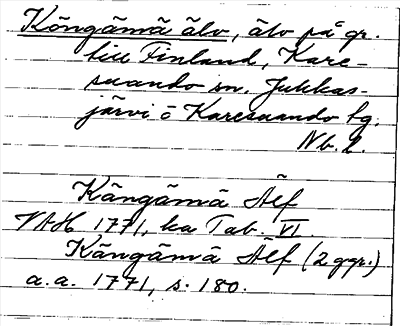 Köngämä älv, älv på gr.
till Finland, Kare-
suando sn. Jukkas-
järvi o Karesuando tg.
Nb. 2.
Kängämä Älf
VAH, 1771, ka Tab. VI.
Kängämä Älf (2 ggr.)
a.a. 1771, s. 180.